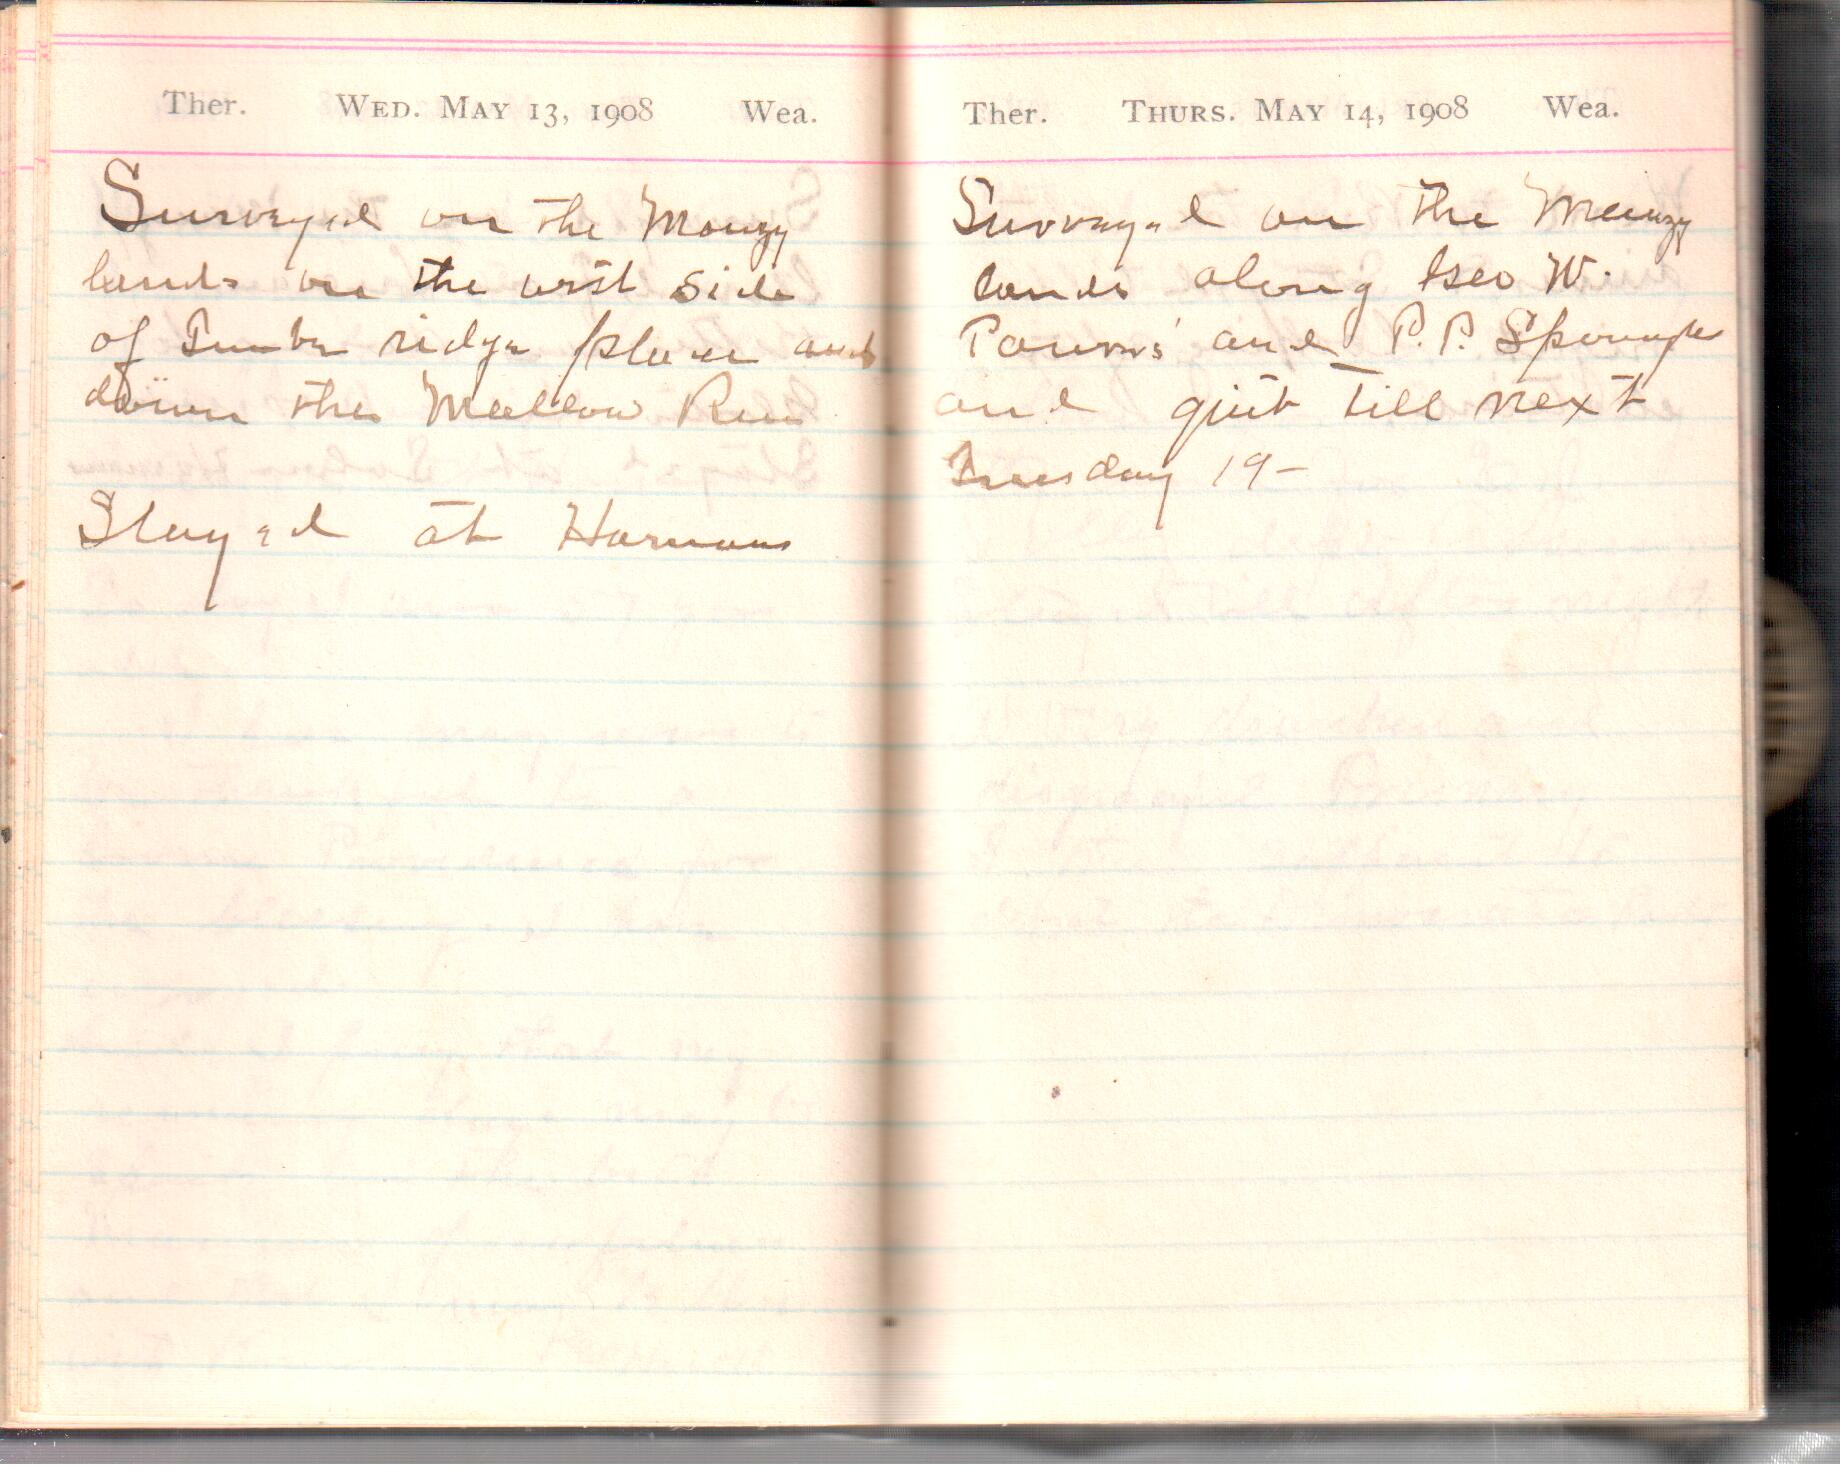 Ther. WED. MAY 13, 1908 Wea.
Surveyed on the Mouzy
lands on the west side
of Timber ridge place and
down the Mellow Run
Stayed at Harmans
Ther. THURS. MAY 14, 1908 Wea.
Surveyed on the Mouzy
lands along Geo W.
and P.P.
and quit till next
Tuesday 19-